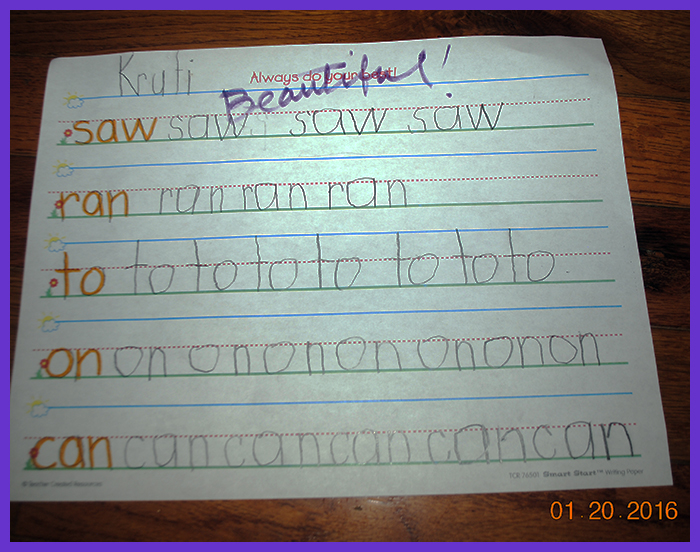 Kruti
Always do your best!
Beautiful!
saw saw saw saw
ran ran ran ran
to to to to to to to to
on on on on on on on on
can can can can can can
© Teacher Created Resources
TCR 76501 Smart Start™ Writing Paper
01.20.2016